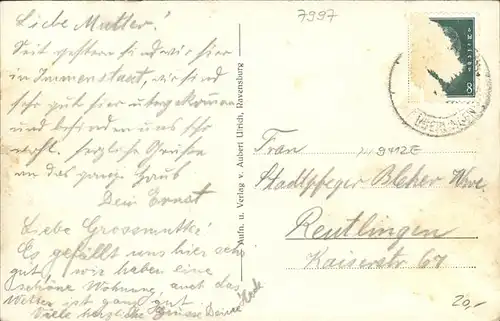 7997
Liebe Mutter!
Seit gestern sind wir hier
in Immenstaad, wir sind
sehr gut hier untergekommen
und befinden uns sehr
wohl. Herzliche Grüsse
an das ganze Haus
Dein Ernst
Liebe Grossmutter!
Es gefällt uns hier sehr
gut, wir haben eine
schöne Wohnung, auch das
Wetter ist ganz gut
Viele herzliche Grüsse Deine
Aufn. u. Verlag v. Aubert Ulrich, Ravensburg
8
Frau
9412E
Stadtpfleger Bleher Wwe.
Reutlingen
Kaiserstr 67
20,-